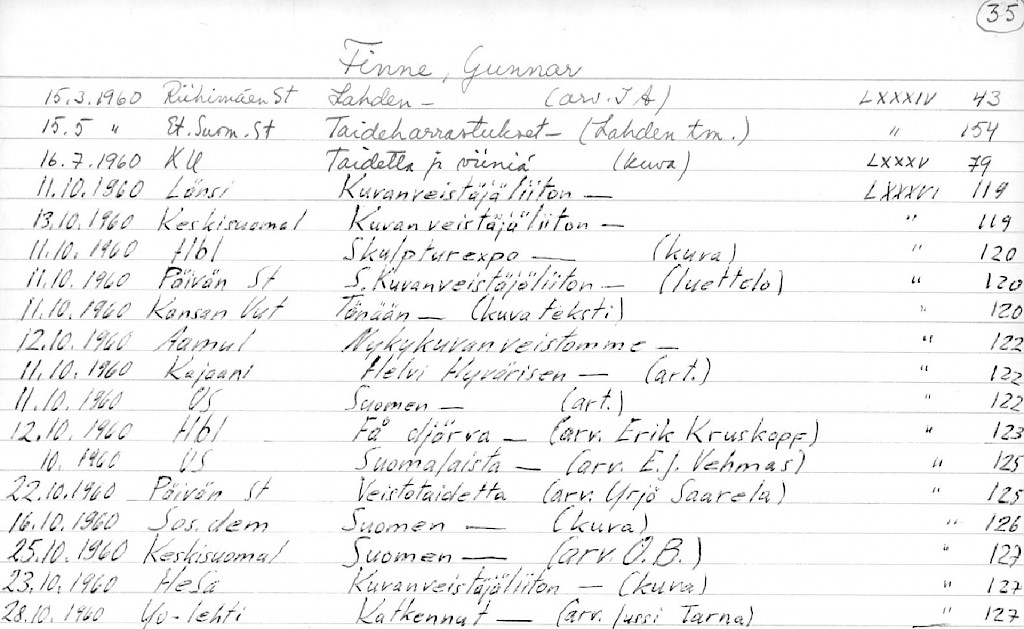 35
Finne, Gunnar
15.3.1960 Riihimäen St Lahden — (arv. J A) LXXXIV 43
15.5 " Et. Suom. St Taideharrastukset — (Lahden tm.) " 154
16.7.1960 KU Taidetta ja viiniä (kuva) LXXXV 79
11.10.1960 Länsi Kuvanveistäjäliiton — LXXXVI 119
13.10.1960 Keskisuomal Kuvanveistäjäliiton — " 119
11.10.1960 Hbl Skulpturexpo — (kuva) " 120
11.10.1960 Päivän St S. Kuvanveistäjäliiton — (luettelo) " 120
11.10.1960 Kansan Uut Tänään — (kuva teksti) " 120
12.10.1960 Aamul Nykykuvanveistomme — " 122
11.10.1960 Kajaani Helvi Hyvärisen — (art.) " 122
11.10.1960 US Suomen — (art.) " 122
12.10.1960 Hbl Få djärva — (arv. Erik Kruskopf) " 123
10.1960 US Suomalaista — (arv. E.J. Vehmas) " 125
22.10.1960 Päivän St Veistotaidetta (arv. Yrjö Saarela) " 125
16.10.1960 Sos.dem Suomen — (kuva) " 126
25.10.1960 Keskisuomal Suomen — (arv. O.B.) " 127
23.10.1960 HeSa Kuvanveistäjäliiton — (kuva) " 127
28.10.1960 Yo-lehti Katkennut — (arv. Jussi Tarna) " 127